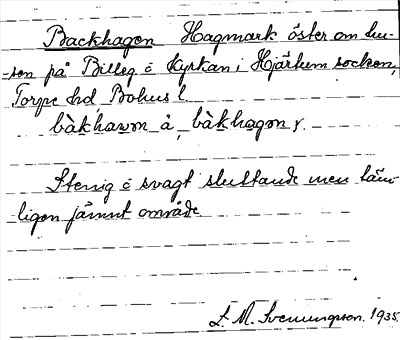 Backhagen Hagmark öster om hu-
sen på Billeg o kyrkan i Hjärtum socken,
Torpe hd, Bohus l.
bàkhawn å, bàkhagon y.
Stenig o svagt sluttande men täm-
ligen jämnt område
L. M. Svenungsson. 1935